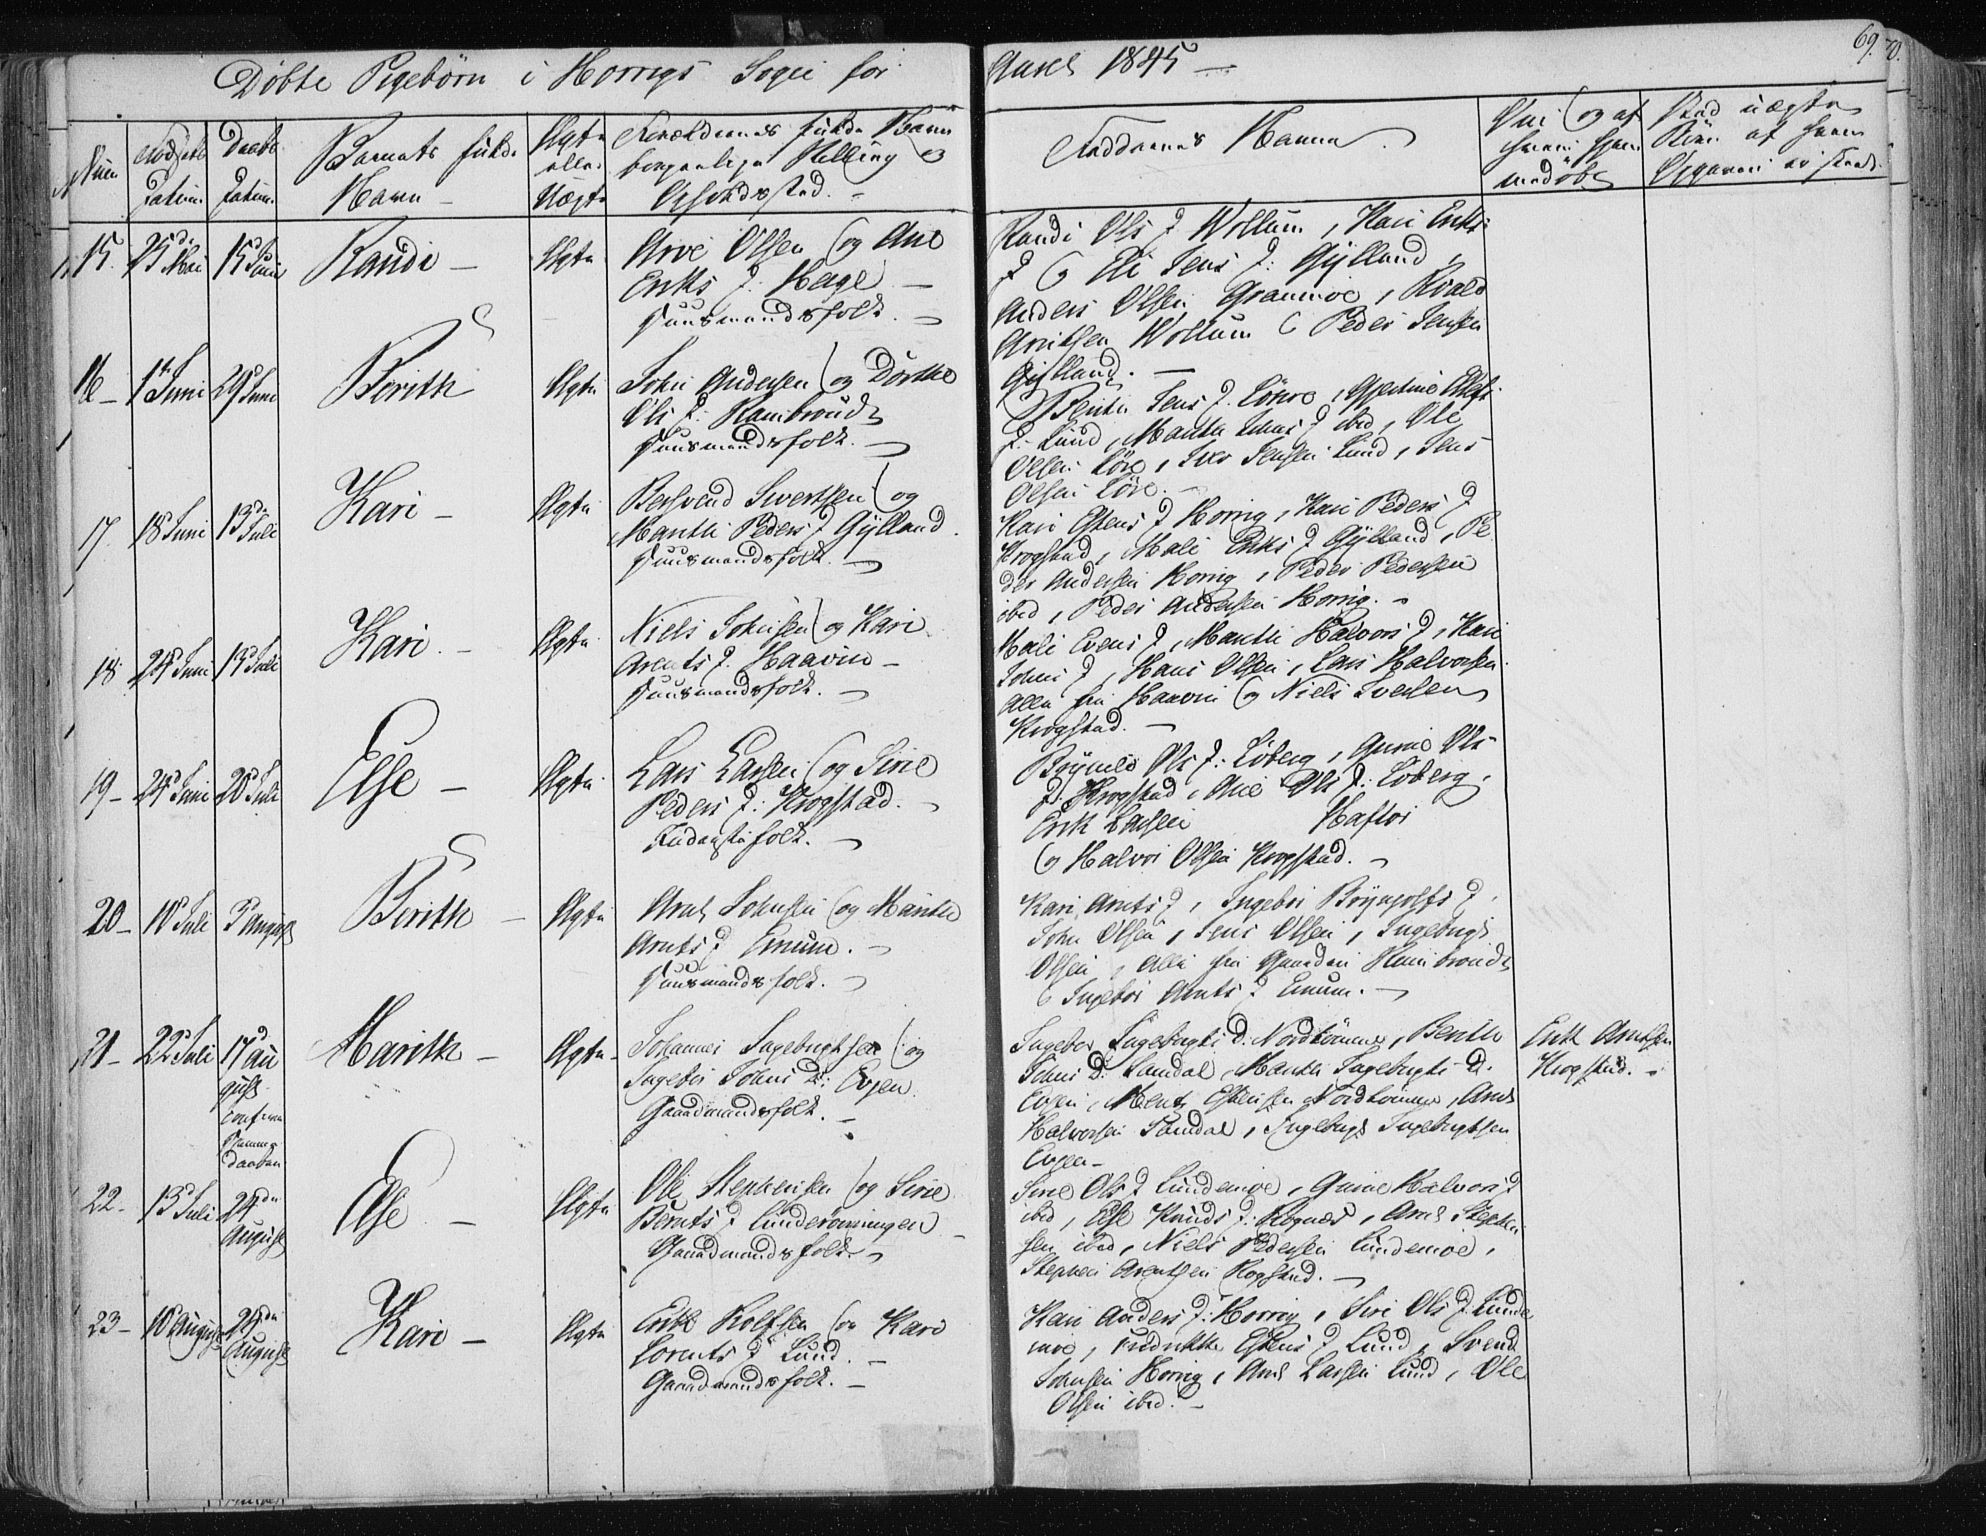 69.
Døbte Pigebørn i Horrigs Sogn for Aaret 1845 —
Barnets fulde Navn —
Ægte eller Uægte
Forældrenes fulde Navn
borgerlige Stilling og
Opholdssted. —
Faddernes Navne.
15. 25d Mai 15d Juni Randi — Ægte
Arve Olsen og Ane
Eriks D: Hage —
Huusmandsfolk. —
Randi Ols D Wollum, Kari Eriks
D og Eli Jens D: Gylland,
Anders Olsen Granmoe, Roald
Arntsen Wollum og Peder Jensen
Gylland. —
16 — 1ste Juni 29d Juni Berith Ægte
John Andersen og Dorthe
Ols D: Rambraud
Huusmandsfolk. —
Berith Jens D. Løhre,
D: Lund, Marith Johns D ibid, Ole
Olsen Løre, Iver Jensen Lund, Jens
Olsen Løre. —
17. 18d Juni 13d Juli Kari — Ægte
Bersvend Sivertsen og
Marith Peders D Gylland.
Huusmandsfolk. —
Kari Estens D Horrig, Kari Peders D
Krogstad, Mali Eriks D Gylland, Pe
der Andersen Horrig, Peder Pedersen
ibid, Peder Andersen Horrig. —
18. 24d Juni 13d Juli Kari. — Ægte
Niels Johnsen og Kari
Arents D. Haavin —
Huusmandsfolk. —
Mali Evens D, Marith Halvors D, Kari
Johns D, Hans Olsen, Lars Halvorsen
alle fra Haavin og Niels Iversen
Krogstad. —
19 — 24d Juni 20d Juli Else — Ægte
Lars Larsen og Sirie
Peders D: Krogstad. —
Inderstfolk. —
Brynild Ols D: Løberg, Gunie Ols
D: Krogstad, Ane Ols D: Løberg,
Erik Larsen Haftor
og Halvor Olsen Krogstad. —
20 — 10d Juli 3d August Berith — Ægte
Arnt Johnsen og Marith
Arnts D Emum. —
Huusmandsfolk. —
Kari Arnts D, Ingebor Brynjolfs D,
John Olsen, Jens Olsen, Ingebrigt
Olsen, alle fra Gaarden
Ingebor Arnts D Emum. —
21 — 22d Juli 17d Au
gust
Marith — Ægte
Johannes Ingebrigtsen og
Ingebor Johns D: Evjen.
Gaardmandsfolk. —
Ingebor Ingebrigts D: Nordtømme, Berith
Johns D: Samdal, Marith Ingebrigts D.
Evjen, Bent Estensen Nordtømme, Arnt
Halvorsen Samdal, Ingebrigt Ingebrigtsen
Evjen —
Erik Arntsen
Krogstad. —
22 — 13d Juli 24de
August
Else — Ægte
Ole Stephensen og Sirie
Bernts D Lunderømningen —
Gaardmandsfolk. —
Sirie Ols D Lundemoe, Gunie Halvors D
ibid, Else Knuds D: Rognæs, Arnt Stephen
sen ibid, Niels Pedersen Lundemoe,
Stephen Arentsen Rogstad. —
23 — 10d August 24de
August
Kari — Ægte
Erik Rolfsen og Kari
Lorents D Lund. —
Gaardmandsfolk. —
Kari Anders D: Horrig, Siri Ols D Lunde
moe, Fredrikke Estens D Lund, Svend
Johnsen Horrig, Arnt Larsen Lund, Ole
Olsen ibid. —